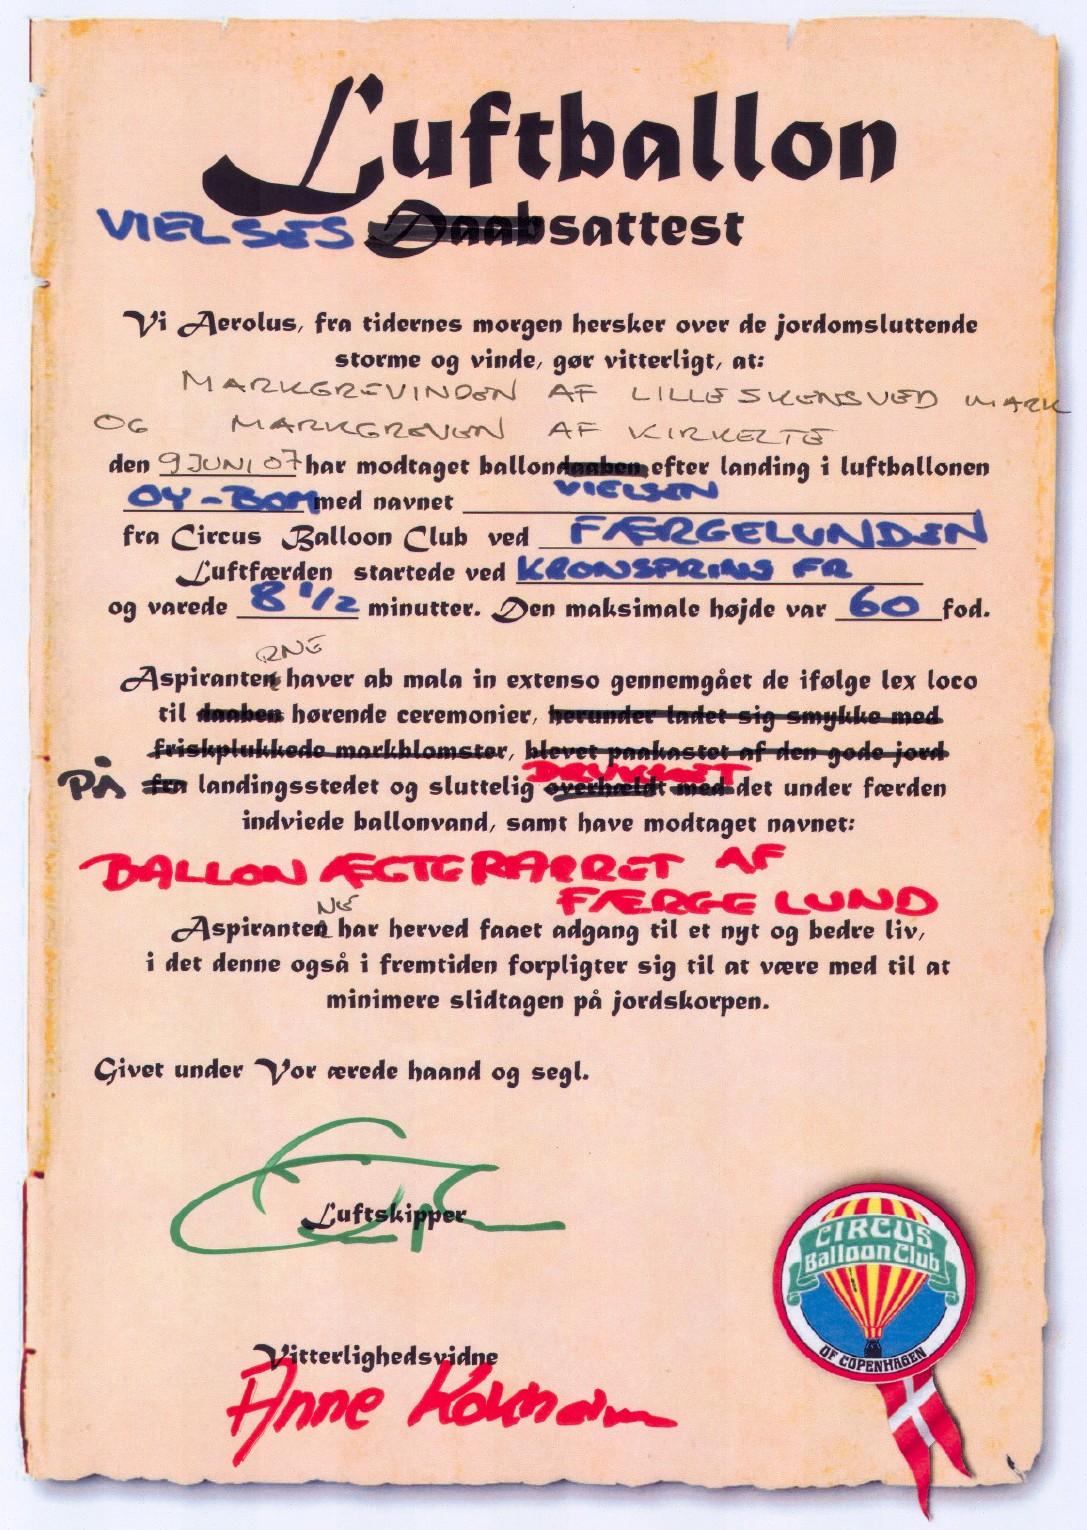 Luftballon
VIELSES Daabsattest
Vi Aerolus, fra tidernes morgen hersker over de jordomsluttende
storme og vinde, gør vitterligt, at:
MARKGREVINDEN AF LILLE SKENSVED MARK
OG MARKGREVEN AF KIRKELTE
den 9 JUNI 07 har modtaget ballondaaben efter landing i luftballonen
VIELSEN
OY-BOM med navnet
fra Circus Balloon Club ved FÆRGELUNDEN
Luftfærden startede ved KRONSPRINS FR
og varede 8 1/2 minutter. Den maksimale højde var 60 fod.
RNE
Aspiranten haver ab mala in extenso gennemgået de ifølge lex loco
til daaben hørende ceremonier, herunder ladet sig smykke med
friskplukkede markblomster, blevet paakastet af den gode jord
DRUKKET
PÅ fra landingsstedet og sluttelig overhældt med det under færden
indviede ballonvand, samt have modtaget navnet:
BALLON ÆGTEPARRET AF
FÆRGE LUND
NE
Aspiranten har herved faaet adgang til et nyt og bedre liv,
i det denne også i fremtiden forpligter sig til at være med til at
minimere slidtagen på jordskorpen.
Givet under Vor ærede haand og segl.
Luftskipper
Vitterlighedsvidne
Anne
CIRCUS
Balloon Club
OF COPENHAGEN